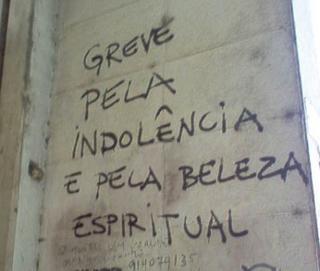 GREVE
PELA
INDOLÊNCIA
E PELA BELEZA
ESPIRITUAL
914079135